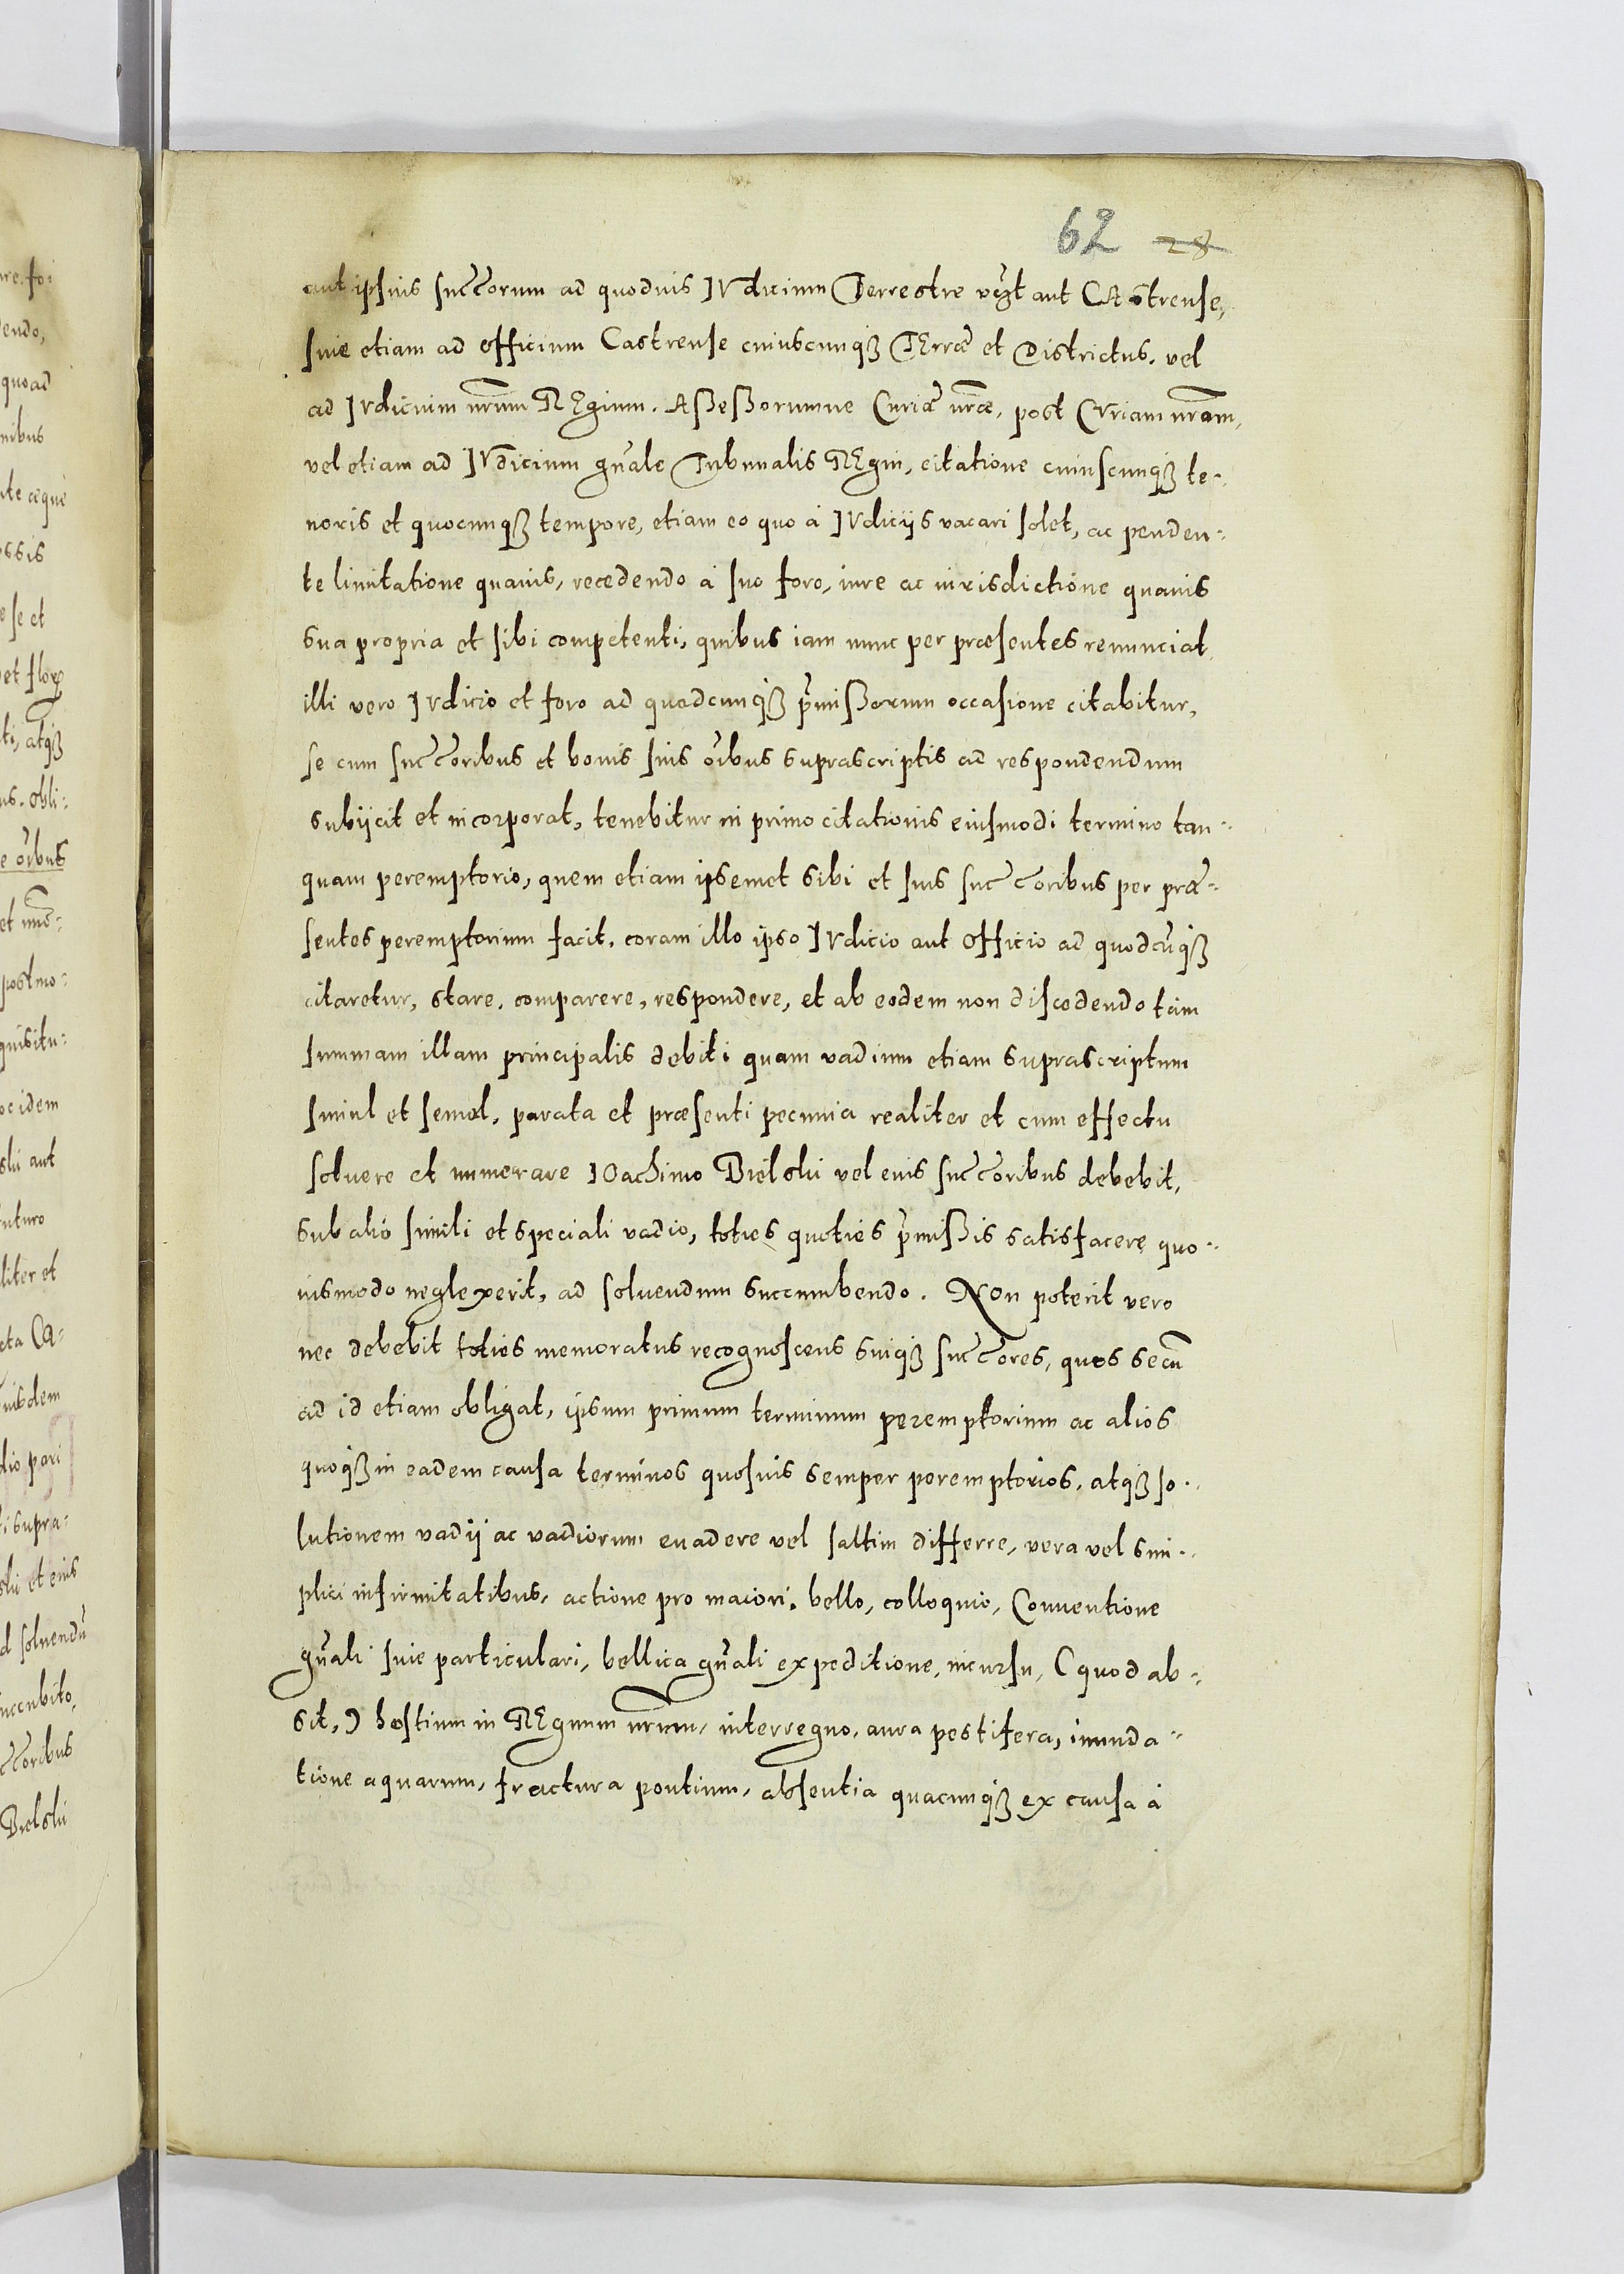 62 28
aut ipsius succ͠orum ad quoduis IVdicium Terrestre vcz͠t aut CAstrense,
siue etiam ad officium Castrense cuiuscunq́ꝫ TErræ et Districtus. vel
ad IVdicium nr͠um REgium. Aßeßorumue Curiæ nr͠æ, post CVriam nr͠am,
vel etiam ad IVdicium gn͠ale Tribunalis REgni, citatione cuiuscunq́ꝫ te-
noris et quocunq́ꝫ tempore, etiam eo quo à IVdicijs vacari solet, ac penden-
te limitatione quauis, recedendo à suo foro, iure ac iurisdictione quauis
sua propria et sibi competenti, quibus iam nunc per præsentes renunciat
illi vero IVdicio et foro ad quodcunq́ꝫ p͠mißorum occasione citabitur,
se cum succ͠oribus et bonis suis oi͠bus suprascriptis ad respondendum
subijcit et incorporat, tenebitur in primo citationis eiusmodi termino tan-
quam peremptorio, quem etiam ipsemet sibi et suis succ͠oribus per præ-
sentes peremptorium facit, coram illo ipso IVdicio aut officio ad quodcu͠q́ꝫ
citaretur, stare, comparere, respondere, et ab eodem non discedendo tàm
summam illam principalis debiti quam vadium etiam suprascriptum
simul et semel, parata et præsenti pecunia realiter et cum effectu
soluere et numerare IOachimo Bielski vel eius succ͠oribus debebit,
sub alio simili et speciali vadio, toties quoties p͠mißis satisfacere quo-
uismodo neglexerit, ad soluendum succumbendo. NOn poterit vero
nec debebit toties memoratus recognoscens suiq́ꝫ succ͠ores, quos secu͠
ad id etiam obligat, ipsum primum terminum peremptorium ac alios
quoq́ꝫ in eadem causa terminos quosuis semper peremptorios, atq́ꝫ so-
lutionem vadij ac vadiorum euadere vel saltim differre, vera vel sim-
plici infirmitatibus, actione pro maiori, bello, colloquio, Conuentione
gn͠ali siue particulari, bellica gn͠ali expeditione, incursu, (quod ab-
sit,) hostium in REgnum nr͠um, interregno, aura pestifera, inunda-
tione aquarum, fractura pontium, absentia quacunq́ꝫ ex causa à